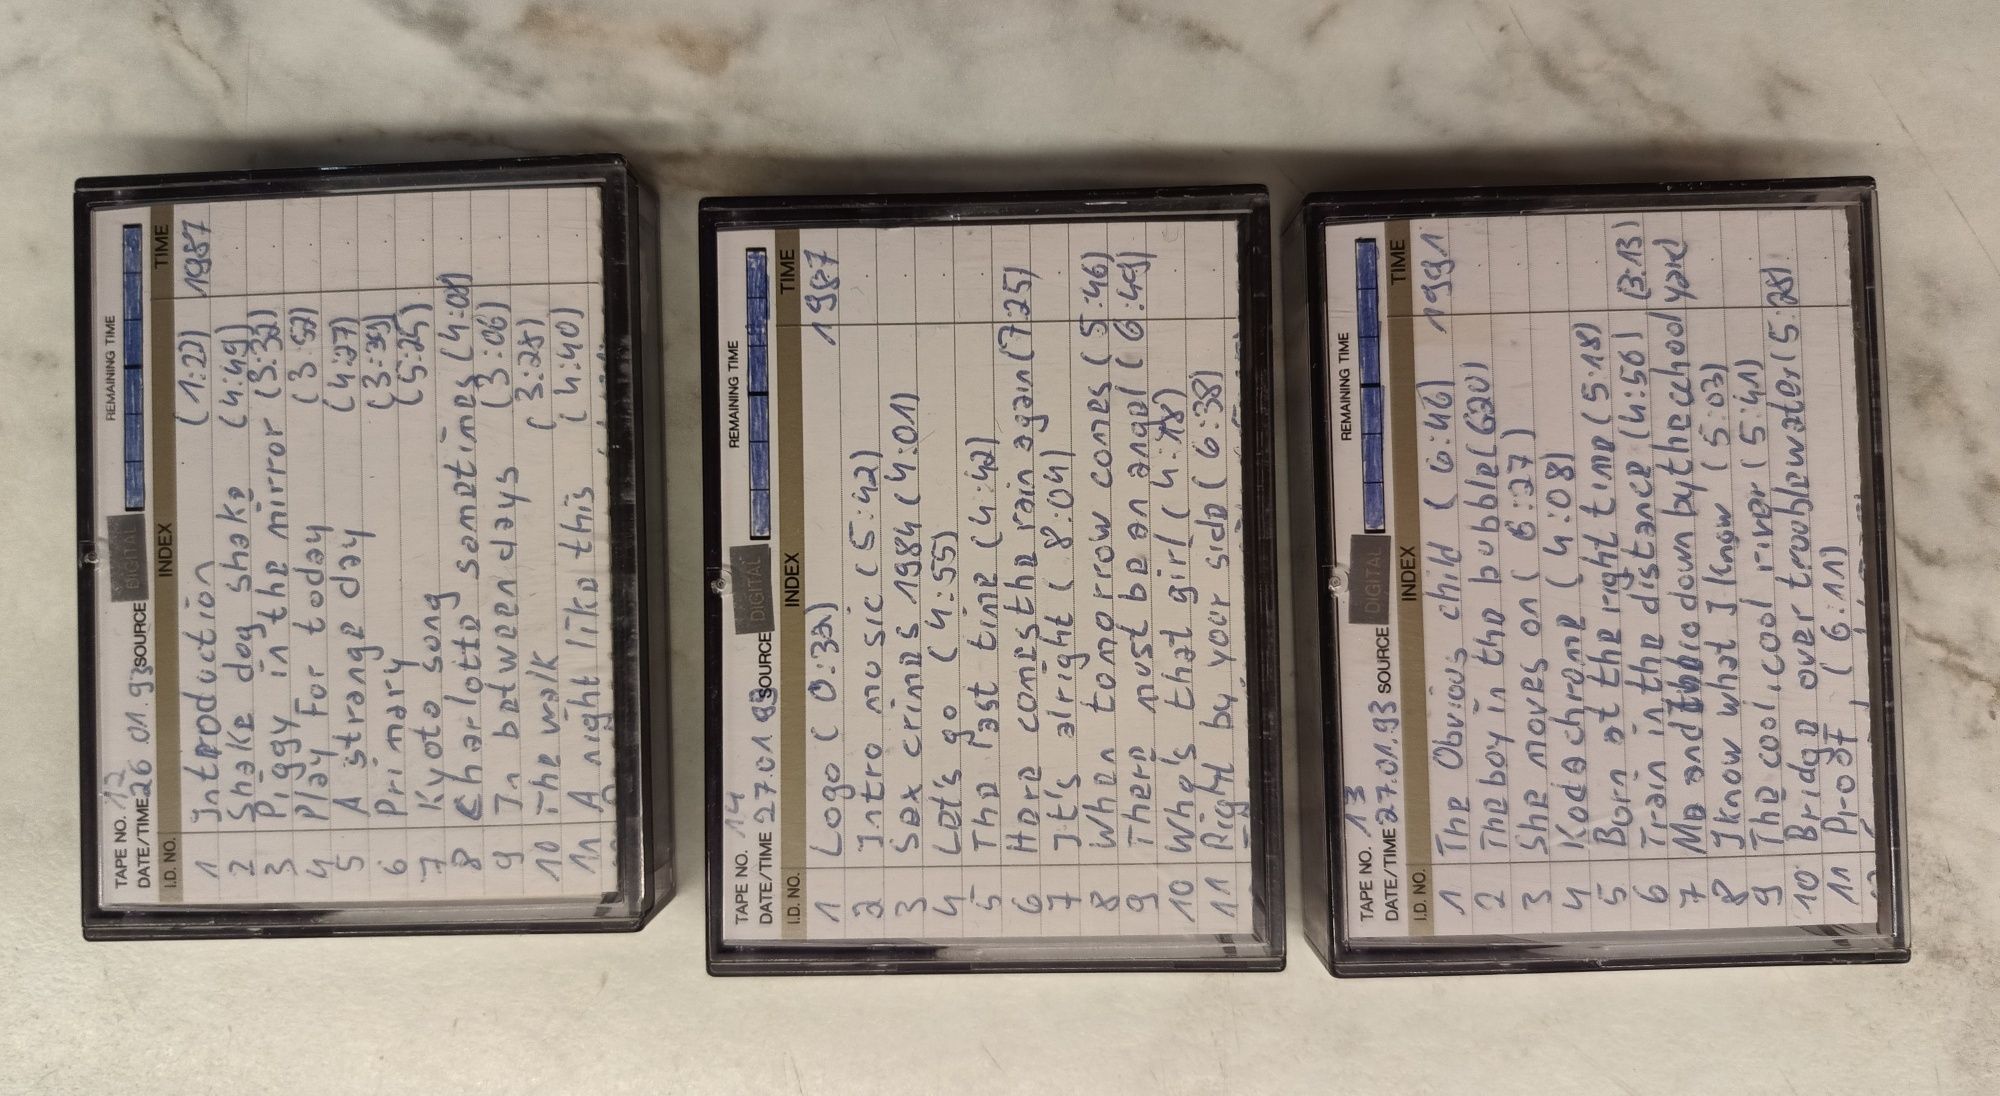 TAPE NO. 12 REMAINING TIME
DATE/TIME 26.01.93 SOURCE DIGITAL
I.D. NO. INDEX TIME
1 Introduction (1:22) 1987
2 Shake dog shake (4:49)
3 Piggy in the mirror (3:32)
4 Play for today (3:52)
5 A strange day (4:27)
6 Primary (3:39)
7 Kyoto song (5:25)
8 Charlotte sometimes (4:08)
9 In between days (3:06)
10 The walk (3:28)
11 A night like this (4:40)
TAPE NO. 14 REMAINING TIME
DATE/TIME 27.01.93 SOURCE DIGITAL
I.D. NO. INDEX TIME
1 Logo (0:32) 1987
2 Intro music (5:42)
3 Sex crimes 1984 (4:01)
4 Let's go (4:55)
5 The last time (4:42)
6 Here comes the rain again (7:25)
7 It's alright (8:04)
8 When tomorrow comes (5:46)
9 There must be an angel (6:49)
10 Who's that girl (4:18)
11 Right by your side (6:38)
TAPE NO. 13 REMAINING TIME
DATE/TIME 27.01.93 SOURCE DIGITAL
I.D. NO. INDEX TIME
1 The Obvious child (6:46) 1991
2 The boy in the bubble (620)
3 She moves on (6:27)
4 Kodachrome (4:08)
5 Born at the right time (5:18)
6 Train in the distance (4:56)
7 Me and Julio down by the schoolyard (3:13)
8 I know what I know (5:03)
9 The cool, cool river (5:41)
10 Bridge over troublewater (5:28)
11 Proof (6:11)